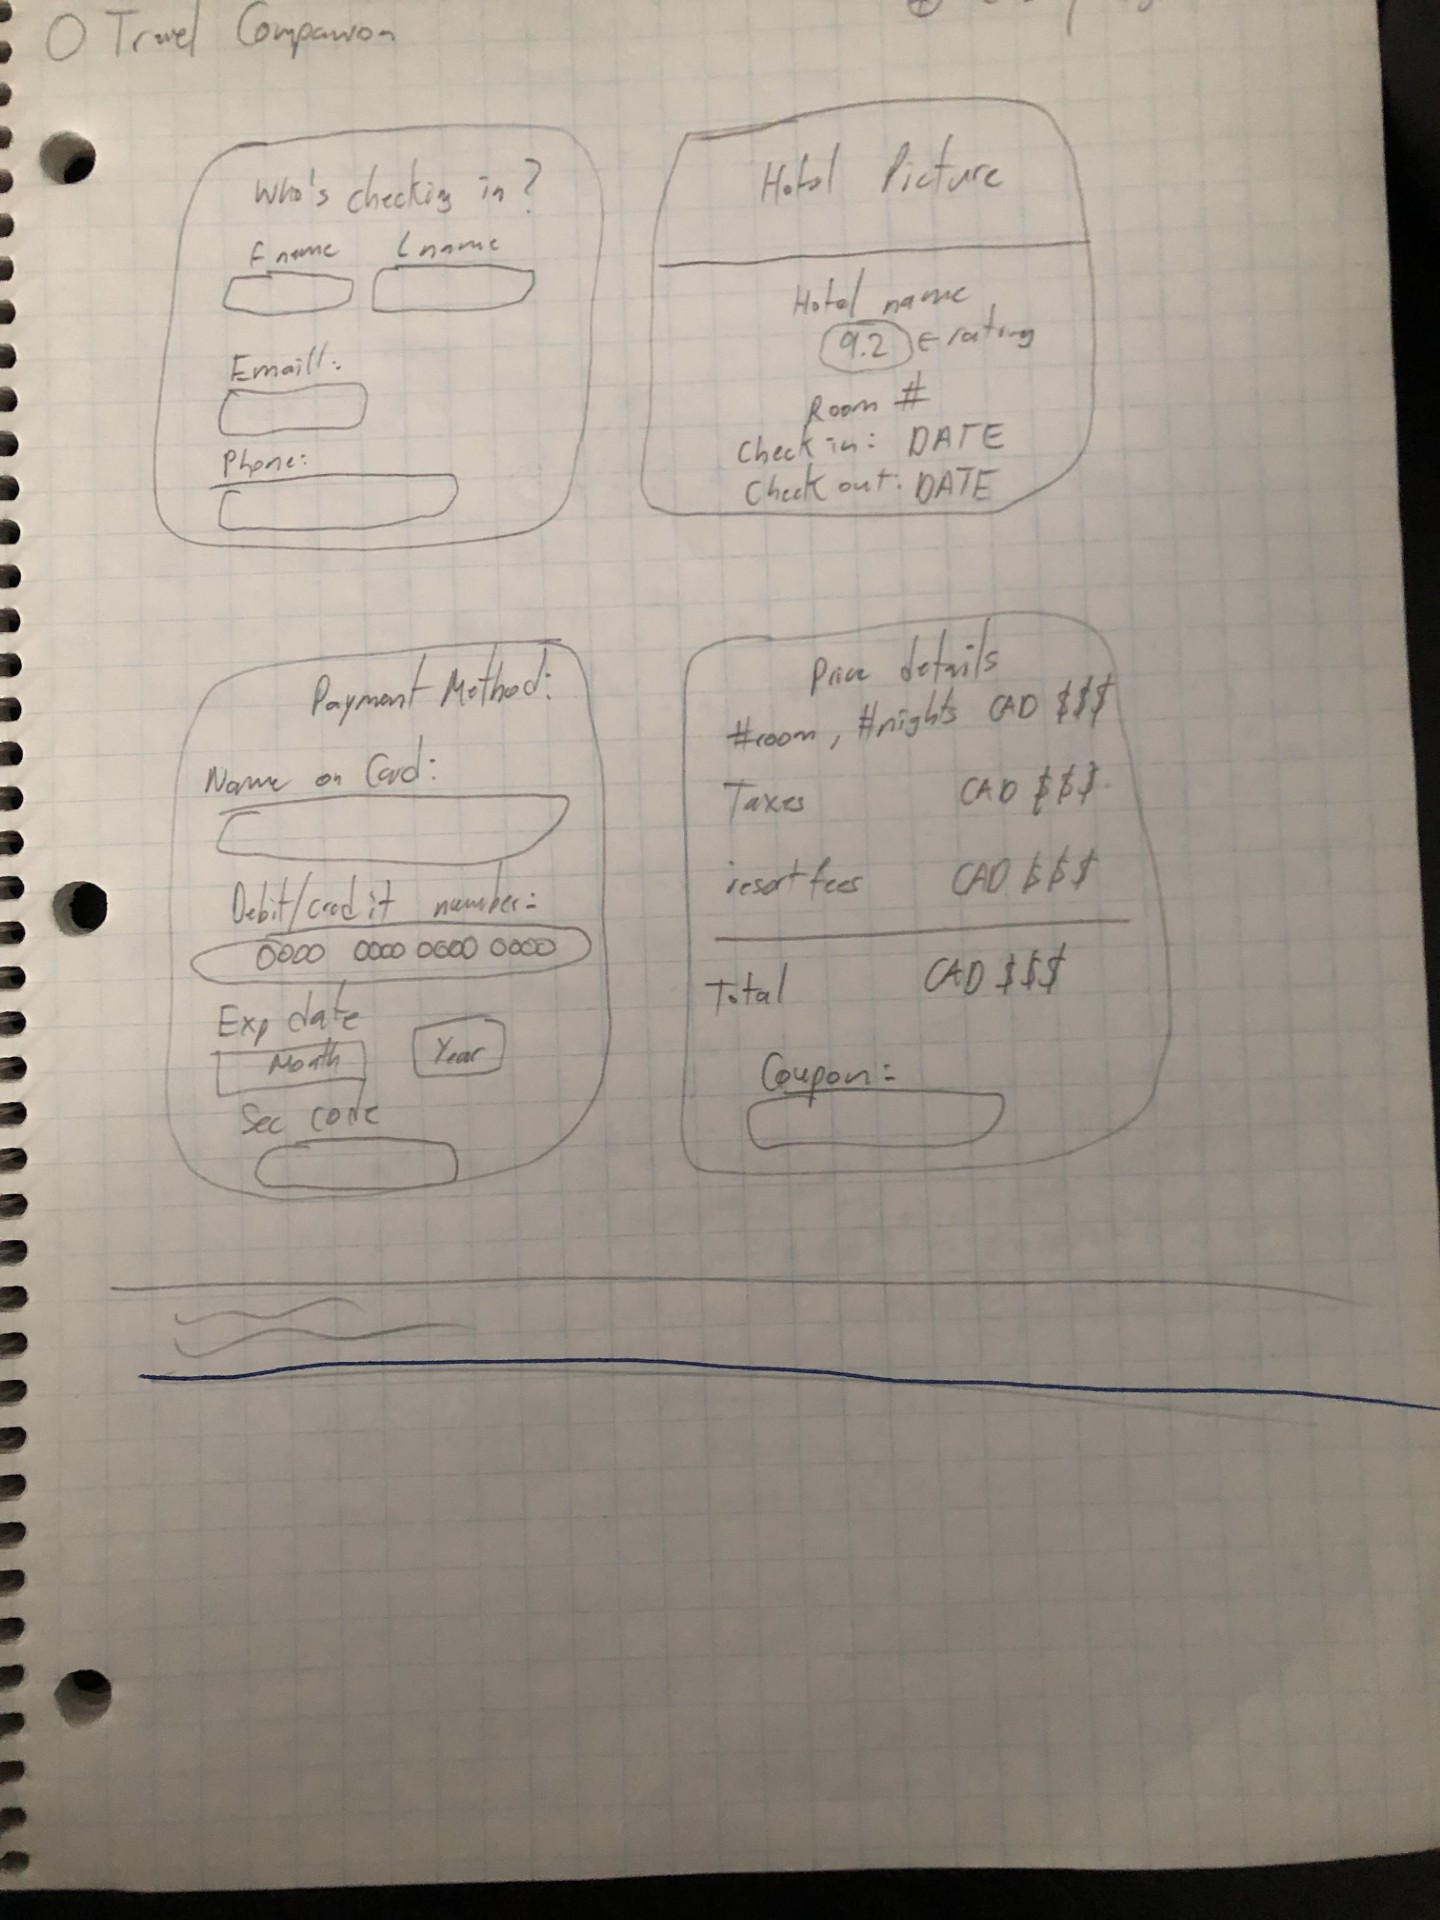 Travel Companion
Who's checking in?
F name L name
Emaill:
Phone:
Hotel Picture
Hotel name
9.2 ← rating
Room #
Check in: DATE
Check out: DATE
Payment Method:
Name on Card:
Debit/credit number:
0000 0000 0000 0000
Exp date
Month Year
Sec code
Price details
#room, #nights CAD $$$
Taxes CAD $$$
resort fees CAD $$$
Total CAD $$$
Coupon: